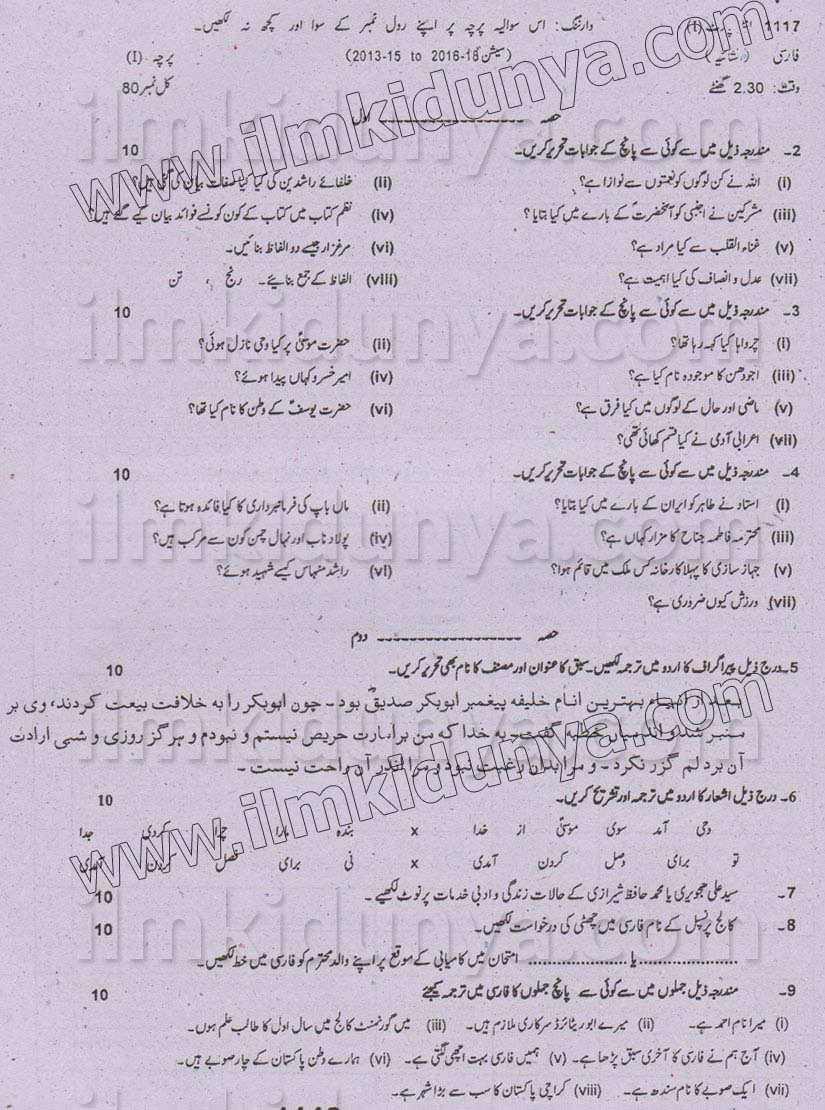 1117 (I) وارننگ: اس سوالیہ پرچہ پر اپنے رول نمبر کے سوا اور کچھ نہ لکھیں۔
فارسی (انشائیہ) (سیشن 2013-15 to 2016-18) پرچہ (I)
وقت: 2.30 گھنٹے کل نمبر 80
حصہ ------------------ اول
2۔ مندرجہ ذیل میں سے کوئی سے پانچ کے جوابات تحریر کریں۔ 10
(i) اللہ نے کن لوگوں کو نعمتوں سے نوازا ہے؟ (ii) خلفائے راشدین کی کیا کیا صفات بیان کی گئی ہیں؟
(iii) مشرکین نے اجنبی کو آنحضرتؐ کے بارے میں کیا بتایا؟ (iv) نظم کتاب میں کتاب کے کون کونسے فوائد بیان کیے گئے ہیں؟
(v) غناء القلب سے کیا مراد ہے؟ (vi) مرغزار جیسے دو الفاظ بنائیں۔
(vii) عدل و انصاف کی کیا اہمیت ہے؟ (viii) الفاظ کے جمع بنائیے۔ رنج ، تن
3۔ مندرجہ ذیل میں سے کوئی سے پانچ کے جوابات تحریر کریں۔ 10
(i) چرواہا کیا کہہ رہا تھا؟ (ii) حضرت موسیٰؑ پر کیا وحی نازل ہوئی؟
(iii) اجودھن کا موجودہ نام کیا ہے؟ (iv) امیر خسرو کہاں پیدا ہوئے؟
(v) ماضی اور حال کے لوگوں میں کیا فرق ہے؟ (vi) حضرت یوسفؑ کے وطن کا نام کیا تھا؟
(vii) اعرابی آدمی نے کیا قسم کھائی تھی؟
4۔ مندرجہ ذیل میں سے کوئی سے پانچ کے جوابات تحریر کریں۔ 10
(i) استاد نے طاہر کو ایران کے بارے میں کیا بتایا؟ (ii) ماں باپ کی فرمانبرداری کا کیا فائدہ ہوتا ہے؟
(iii) محترمہ فاطمہ جناح کا مزار کہاں ہے؟ (iv) پولاد ناب اور نہال چمن کون سے مرکب ہیں؟
(v) جہاز سازی کا پہلا کارخانہ کس ملک میں قائم ہوا؟ (vi) راشد منہاس کیسے شہید ہوئے؟
(vii) ورزش کیوں ضروری ہے؟
حصہ ------------------ دوم
5۔ درج ذیل پیراگراف کا اردو میں ترجمہ لکھیں۔ سبق کا عنوان اور مصنف کا نام بھی تحریر کریں۔ 10
بعد از انبیاء بهترین انام خلیفه پیغمبر ابوبکر صدیقؓ بود ۔ چون ابوبکر را به خلافت بیعت کردند، وی بر
منبر شد و اندر میان خطبه گفت۔ به خدا که من بر امارت حریص نیستم و نبودم و هرگز روزی و شبی ارادت
آن بر دلم گزر نکرد ۔ و مرا بدان رغبت نبود و مرا اندر آن راحت نیست ۔
6۔ درج ذیل اشعار کا اردو میں ترجمہ اور تشریح کریں۔ 10
وحی آمد سوی موسیٰؑ از خدا x بندہ مارا چرا کردی جدا
تو برای وصل کردن آمدی x نی برای فصل کردن آمدی
7۔ سید علی ہجویری یا محمد حافظ شیرازی کے حالات زندگی و ادبی خدمات پر نوٹ لکھیے۔ 10
8۔ کالج پرنسپل کے نام فارسی میں چھٹی کی درخواست لکھیں۔ 10
.................... یا .................... امتحان میں کامیابی کے موقع پر اپنے والد محترم کو فارسی میں خط لکھیں۔
9۔ مندرجہ ذیل جملوں میں سے کوئی سے پانچ جملوں کا فارسی میں ترجمہ کیجئے 10
(i) میرا نام احمد ہے۔ (ii) میرے ابو ریٹائرڈ سرکاری ملازم ہیں۔ (iii) میں گورنمنٹ کالج میں سال اول کا طالب علم ہوں۔
(iv) آج ہم نے فارسی کا آخری سبق پڑھا ہے۔ (v) ہمیں فارسی بہت اچھی لگتی ہے۔ (vi) ہمارے وطن پاکستان کے چار صوبے ہیں۔
(vii) ایک صوبے کا نام سندھ ہے۔ (viii) کراچی پاکستان کا سب سے بڑا شہر ہے۔
www.ilmkidunya.com
www.ilmkidunya.com
ilmkidunya.com
ilmkidunya.com
ilmkidunya.com
ilmkidunya.com
ilmkidunya.com